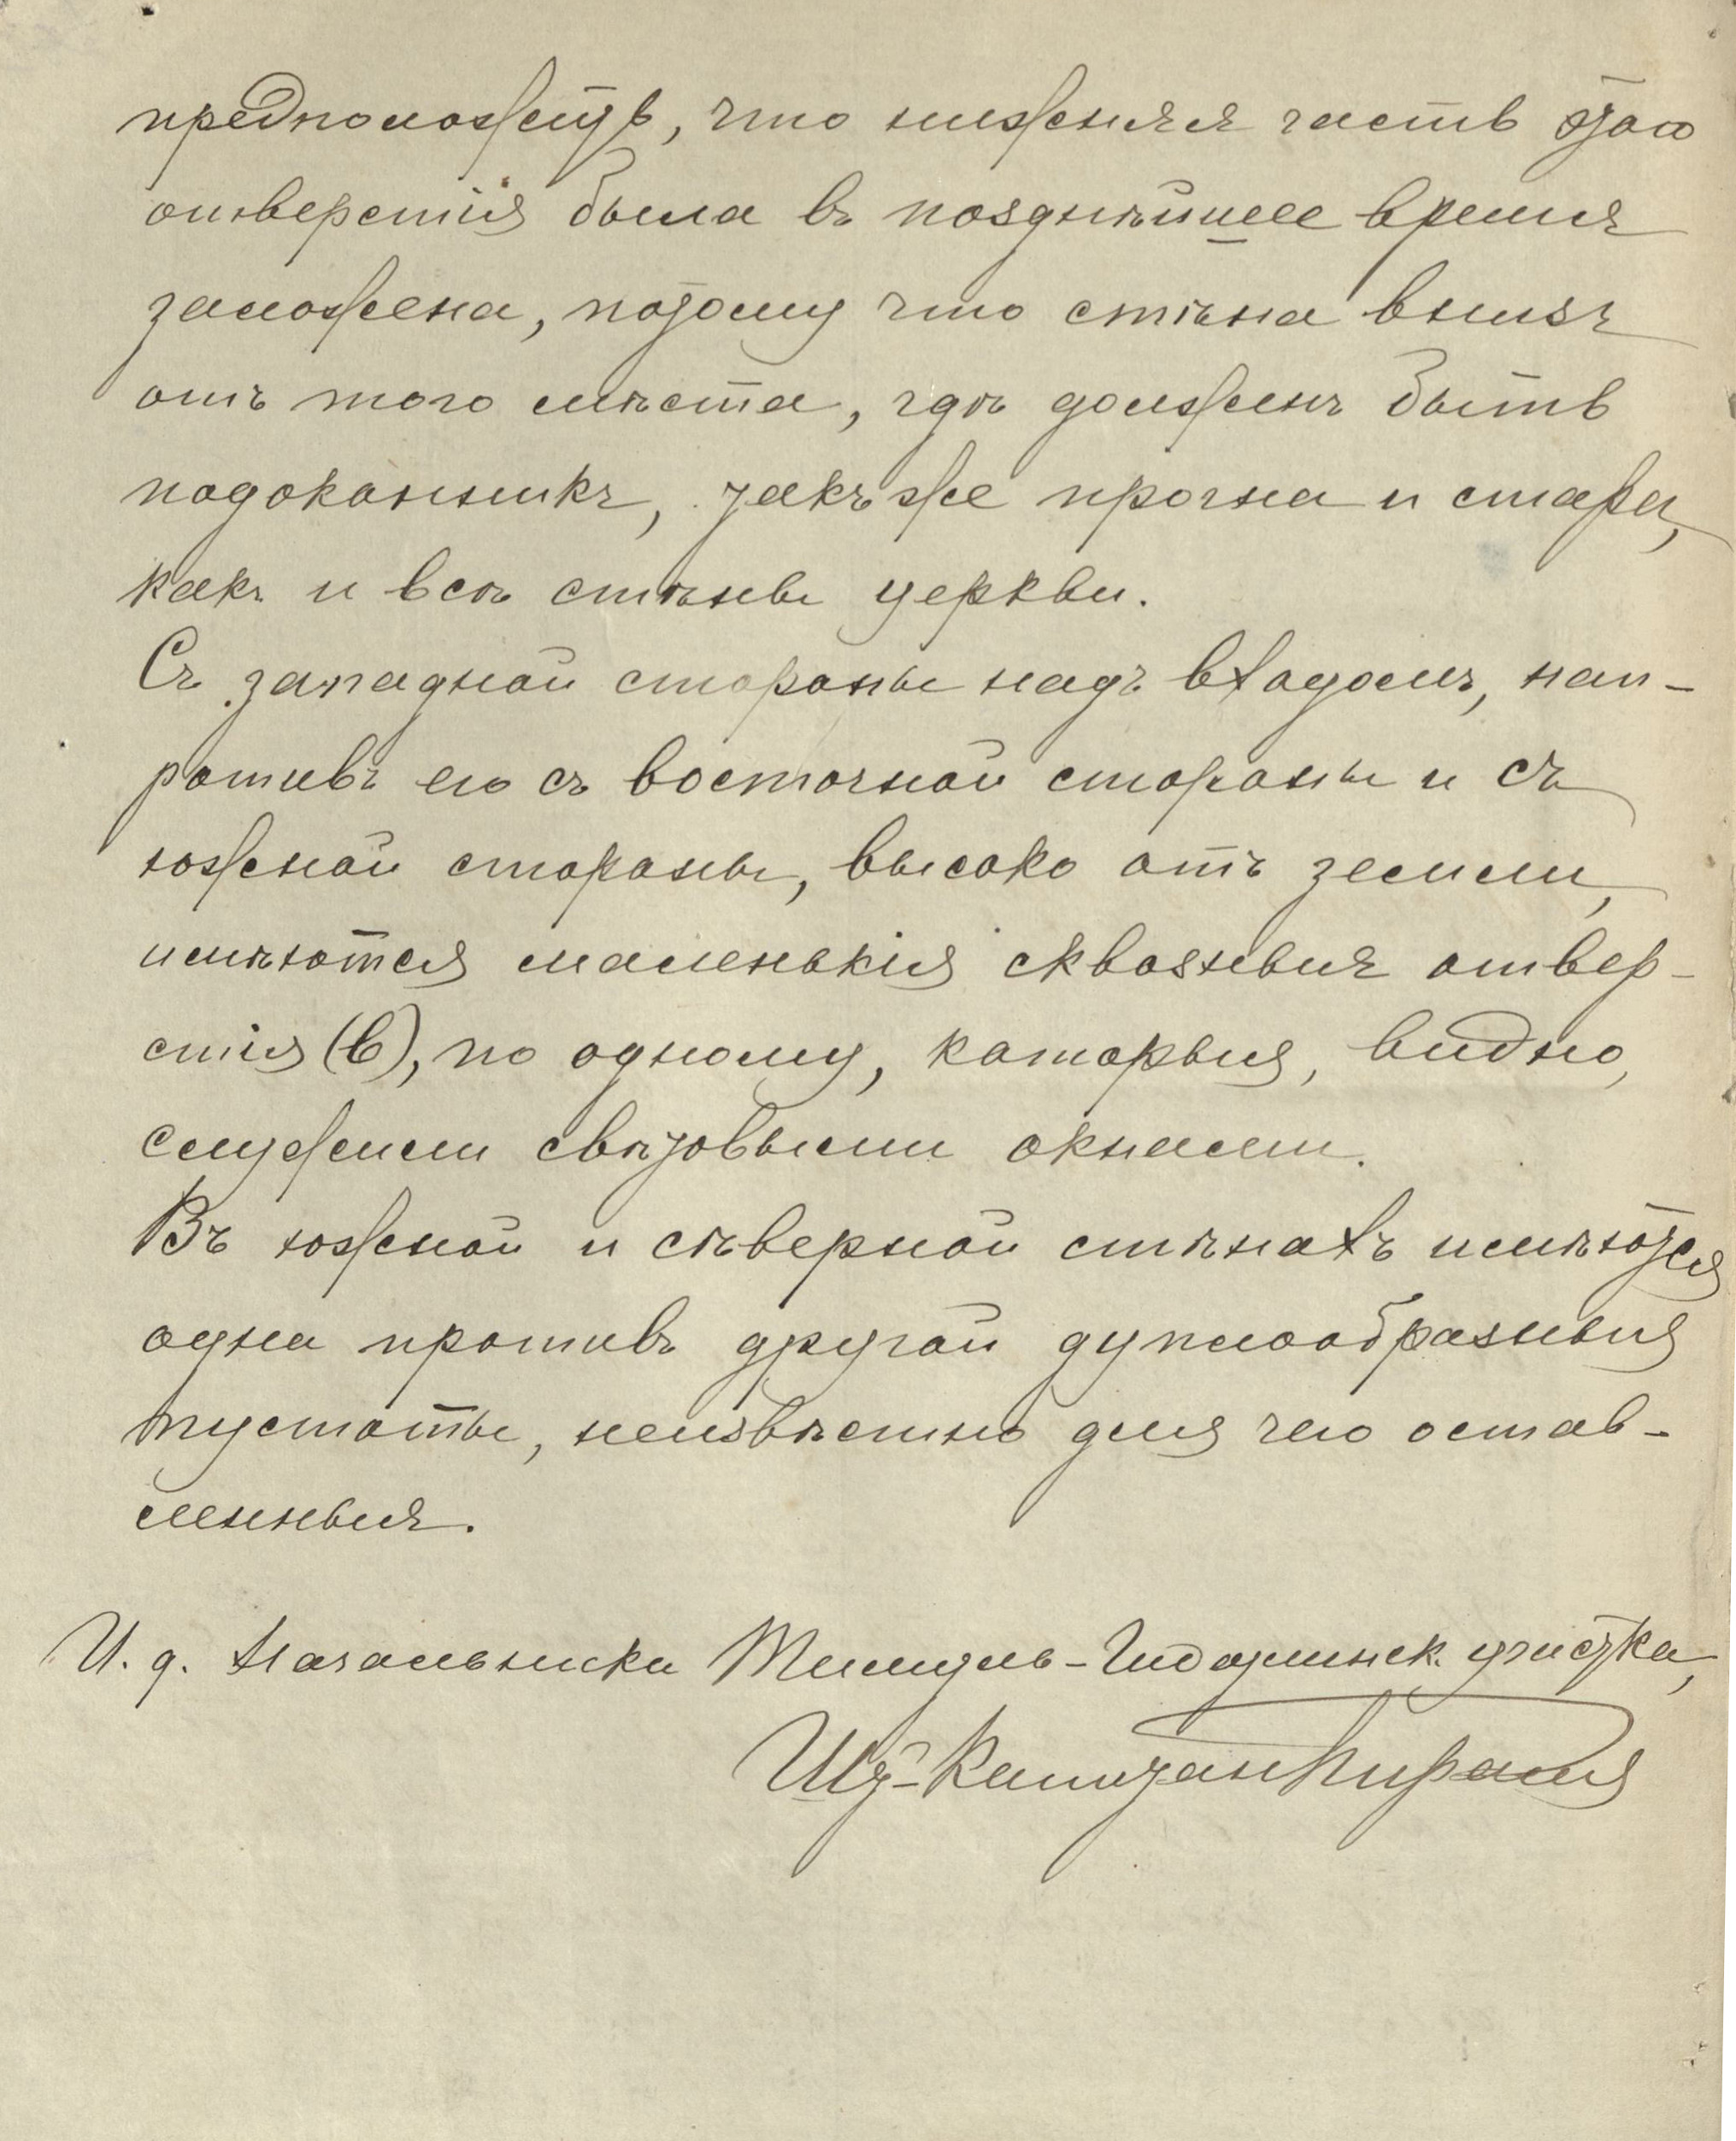 предположить, что нижняя часть этого
отверстія была въ позднѣйшее время
заложена, потому что стѣна внизъ
отъ того мѣста, гдѣ долженъ быть
подоконникъ, такъ же прочна и стара,
какъ и всѣ стѣны церкви.
Съ западной стороны надъ входомъ, нап-
ротивъ его съ восточной стороны и съ
южной стороны, высоко отъ земли,
имѣются маленькія сквозныя отвер-
стія (в), по одному, которыя, видно,
служили свѣтовыми окнами.
Въ южной и сѣверной стѣнахъ имѣются
одна противъ другой дуплообразныя
пустоты, неизвѣстно для чего остав-
ленныя.
И. д. Начальника участка,
Шт-Капитан